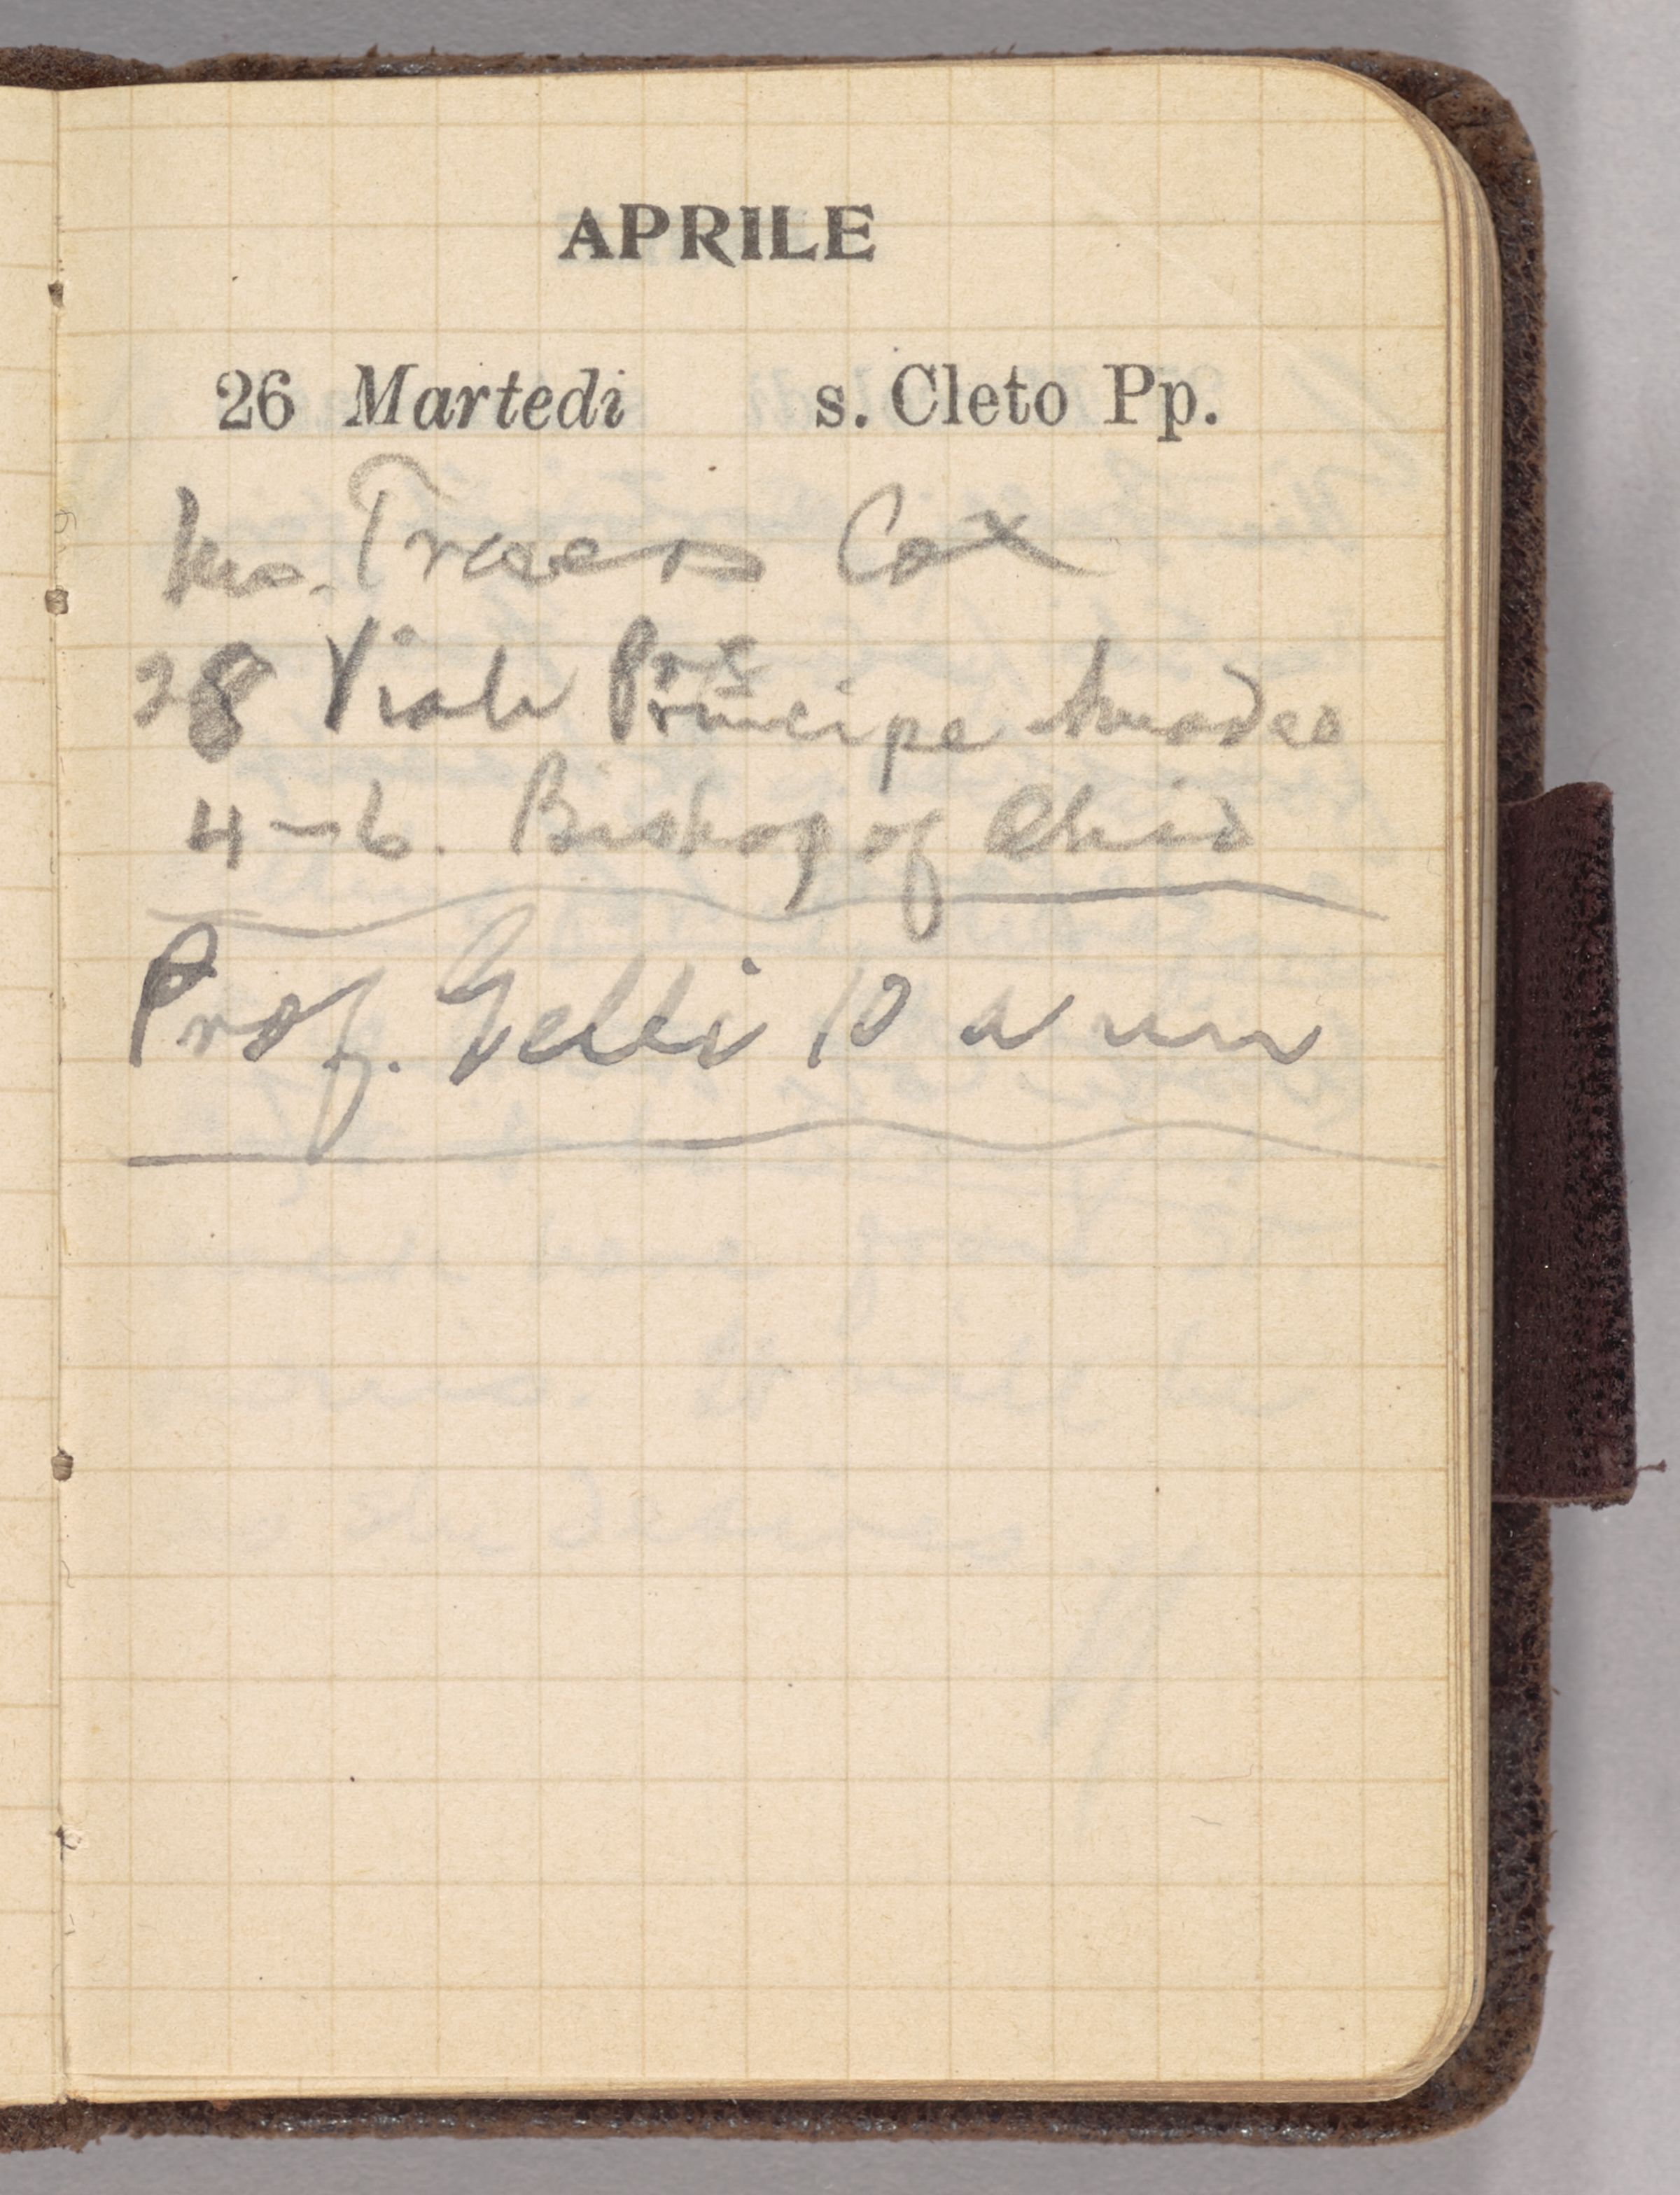 APRILE
26 Martedi s. Cleto Pp.
Cox
28 Viale Principe Amadeo
4-6. Bishop of Ohrid
Prof. Gelli 10 a m